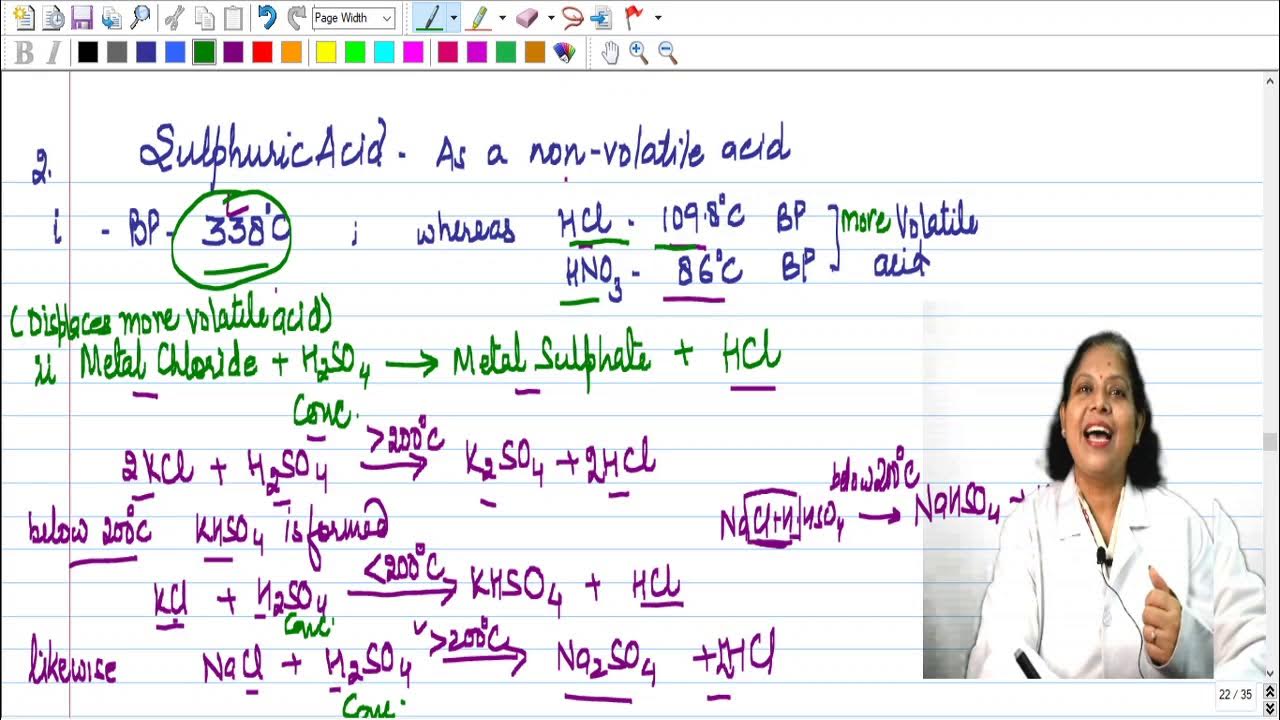 Page Width
B I
2. Sulphuric Acid - As a non-volatile acid
i - BP - 338°C ; whereas HCl - 109.8°C BP ] more Volatile
HNO3 - 86°C BP acid
(Displaces more volatile acid)
ii Metal Chloride + H2SO4 → Metal Sulphate + HCl
Conc.
2KCl + H2SO4 >200°C → K2SO4 + 2HCl
below 200°C KHSO4 is formed
NaCl + H HSO4 below 200°C → NaHSO4 +
KCl + H2SO4 <200°C → KHSO4 + HCl
Conc.
likewise NaCl + H2SO4 >200°C → Na2SO4 + 2HCl
Conc.
22 / 35